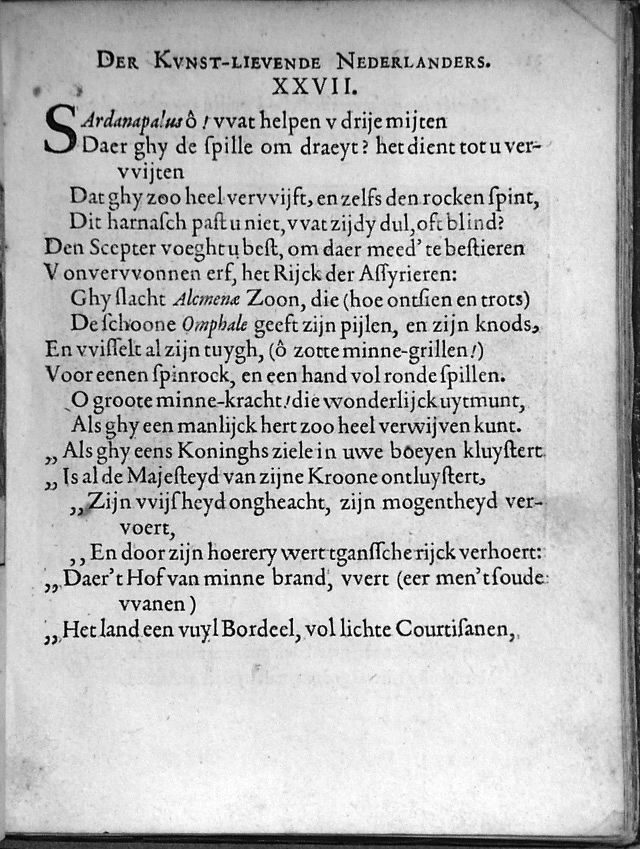 DER KVNST-LIEVENDE NEDERLANDERS.
XXVII.
SArdanapalus ô! vvat helpen v drije mijten
Daer ghy de ſpille om draeyt? het dient tot u ver-
vvijten
Dat ghy zoo heel vervvijft, en zelfs den rocken ſpint,
Dit harnaſch paſt u niet, vvat zijdy dul, oft blind?
Den Scepter voeght u beſt, om daer meed' te beſtieren
V onvervvonnen erf, het Rijck der Aſſyrieren:
Ghy ſlacht Alcmenæ Zoon, die (hoe ontſien en trots)
De ſchoone Omphale geeft zijn pijlen, en zijn knods,
En vviſſelt al zijn tuygh, (ô zotte minne-grillen!)
Voor eenen ſpinrock, en een hand vol ronde ſpillen.
O groote minne-kracht! die wonderlijck uytmunt,
Als ghy een manlijck hert zoo heel verwijven kunt.
„ Als ghy eens Koninghs ziele in uwe boeyen kluyſtert
„ Is al de Majeſteyd van zijne Kroone ontluyſtert,
„ Zijn vvijſheyd ongheacht, zijn mogentheyd ver-
voert,
„ En door zijn hoerery wert tganſſche rijck verhoert:
„ Daer't Hof van minne brand, vvert (eer men't ſoude
vvanen)
„ Het land een vuyl Bordeel, vol lichte Courtiſanen,